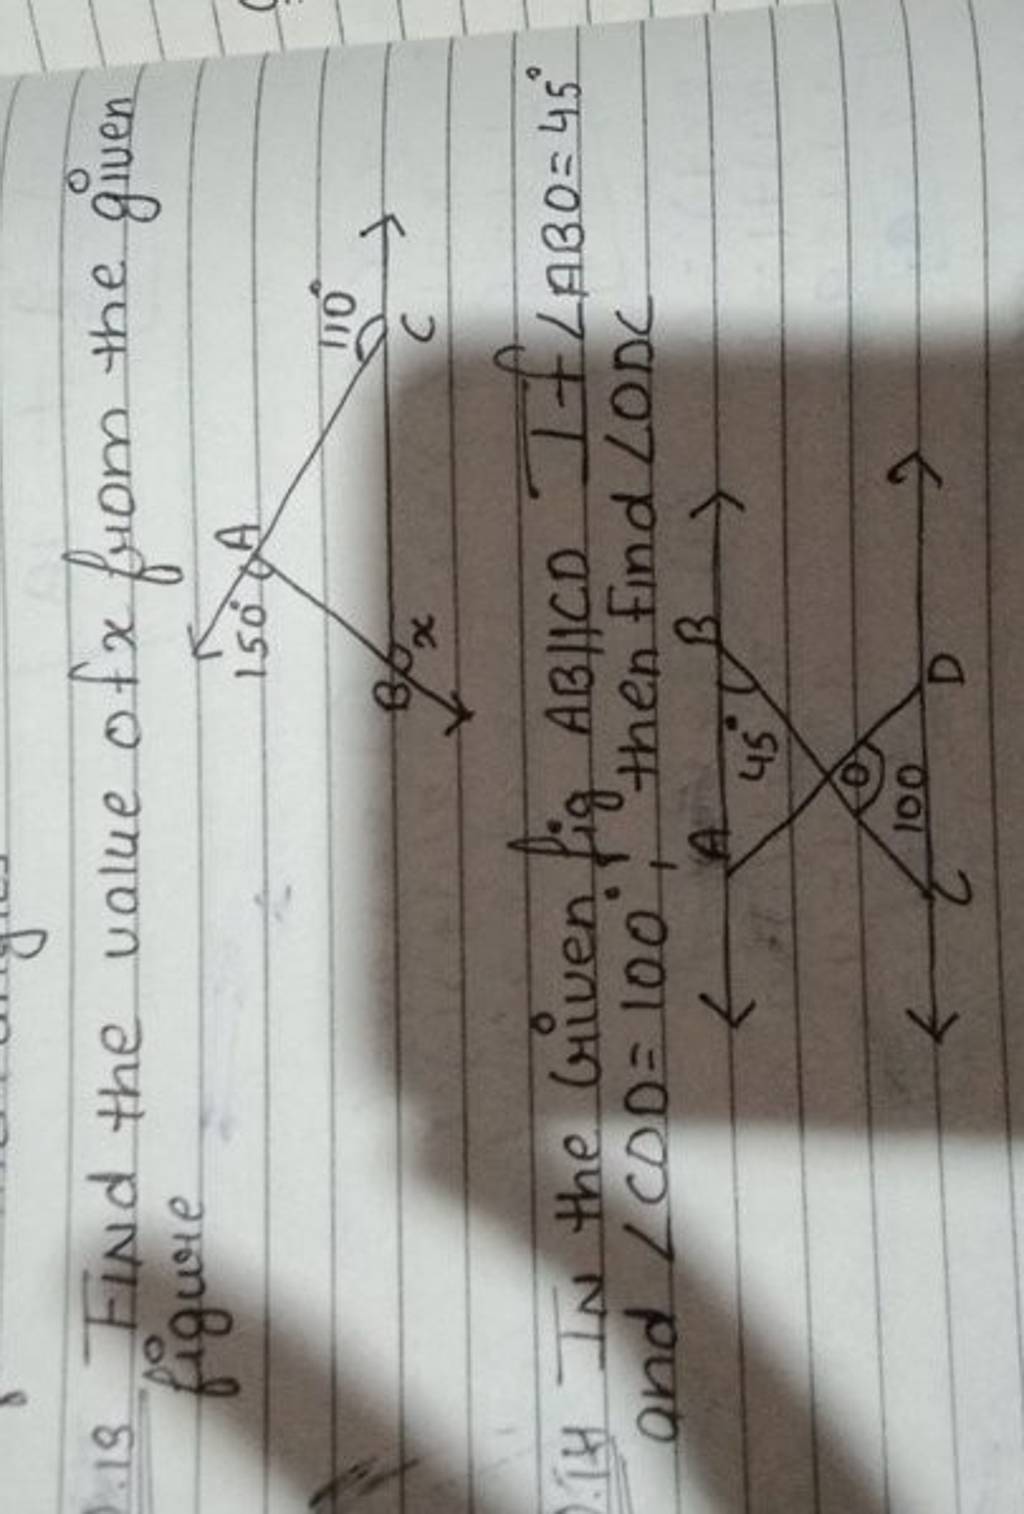 .13 Find the value of x from the given
figure
150°
A
110°
B
x
C
.14 In the Given fig AB||CD If ∠ABO = 45°
and ∠COD = 100°, then find ∠ODC
A
B
45°
O
100
C
D